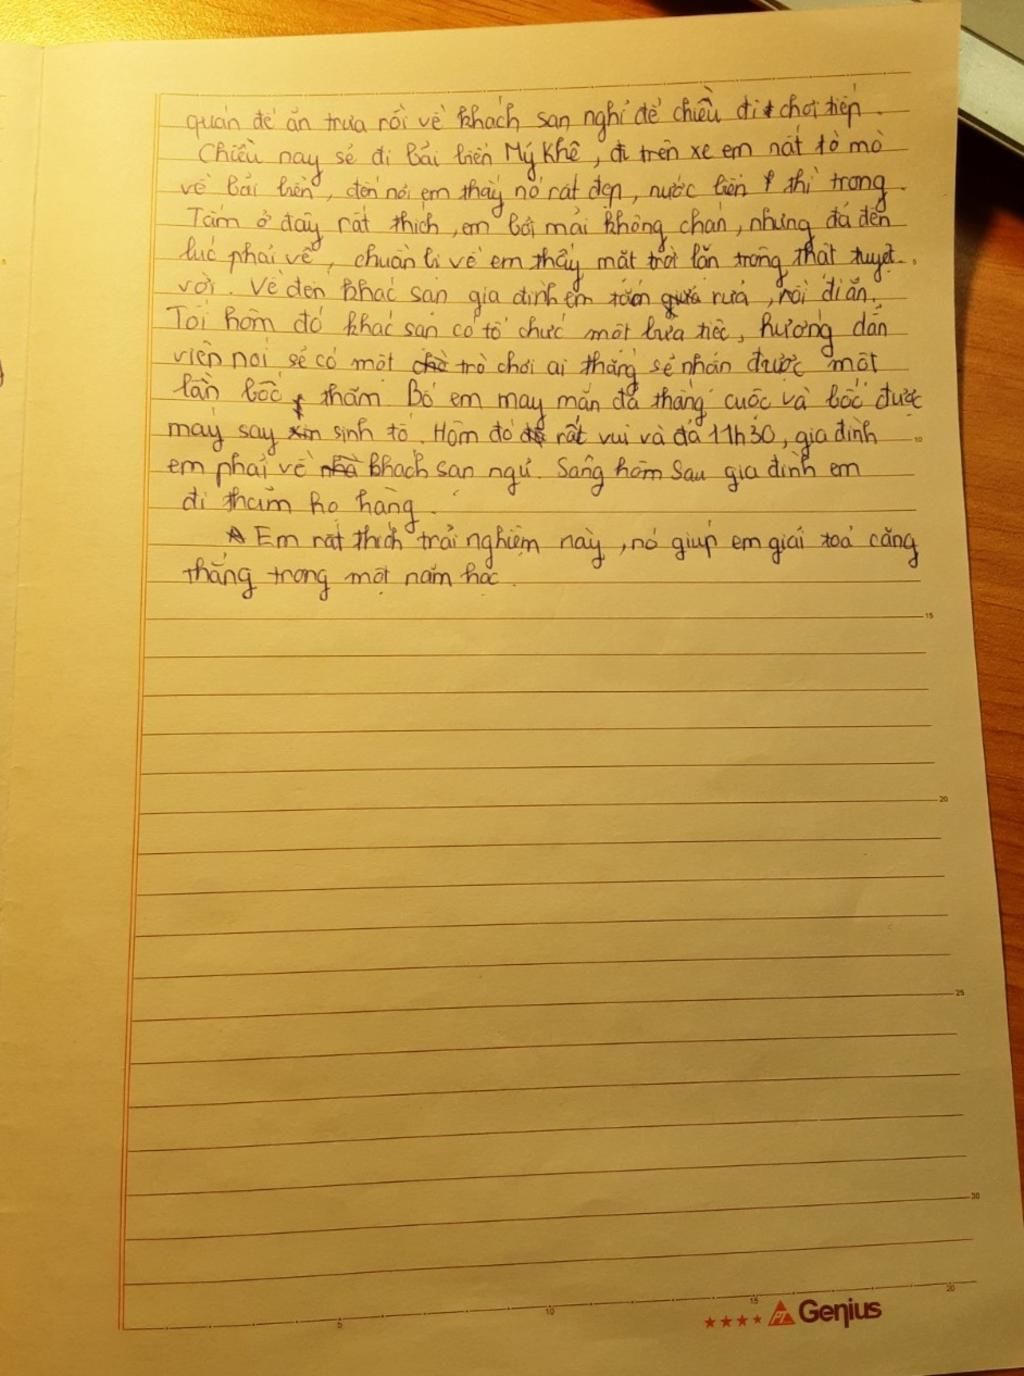 quán để ăn trưa rồi về khách sạn nghỉ để chiều đi chơi tiếp.
Chiều nay sẽ đi bãi biển Mỹ Khê, đi trên xe em rất tò mò
về bãi biển, đến nơi em thấy nó rất đẹp, nước biển thì trong.
Tắm ở đây rất thích, em bơi mãi không chán, nhưng đã đến
lúc phải về, chuẩn bị về em thấy mặt trời lặn trông thật tuyệt
vời. Về đến khác sạn gia đình em rửa, rồi đi ăn.
Tối hôm đó khác sạn có tổ chức một bữa tiệc, hướng dẫn
viên nói sẽ có một trò chơi ai thắng sẽ nhận được một
lần bốc thăm. Bố em may mắn đã thắng cuộc và bốc được
máy say sinh tố. Hôm đó rất vui và đã 11h30, gia đình
em phải về khách sạn ngủ. Sáng hôm sau gia đình em
đi thăm họ hàng.
Em rất thích trải nghiệm này, nó giúp em giải toả căng
thẳng trong một năm học.
15
10
20
25
30
5
10
15
20
PT Genius